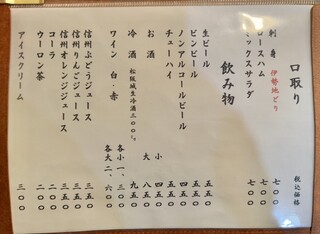 口取り 税込価格
刺身 伊勢地どり 七〇〇
ロースハム 七〇〇
ミックスサラダ 七〇〇
飲み物
生ビール 五五〇
ビンビール 五五〇
ノンアルコールビール 四五〇
チューハイ 四五〇
お酒 小 四五〇
大 八五〇
冷酒 松阪城生冷酒三〇〇ml 九五〇
ワイン 白・赤 各小一、三〇〇
各大二、六〇〇
信州ぶどうジュース 三五〇
信州りんごジュース 三五〇
信州オレンジジュース 三五〇
コーラ 二〇〇
ウーロン茶 二〇〇
アイスクリーム 三〇〇